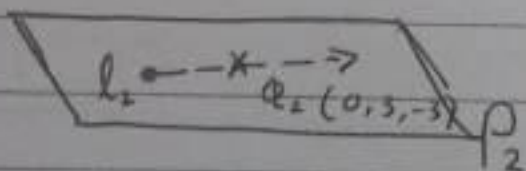 l₂
Q₂ (0, 3, -3)
P₂